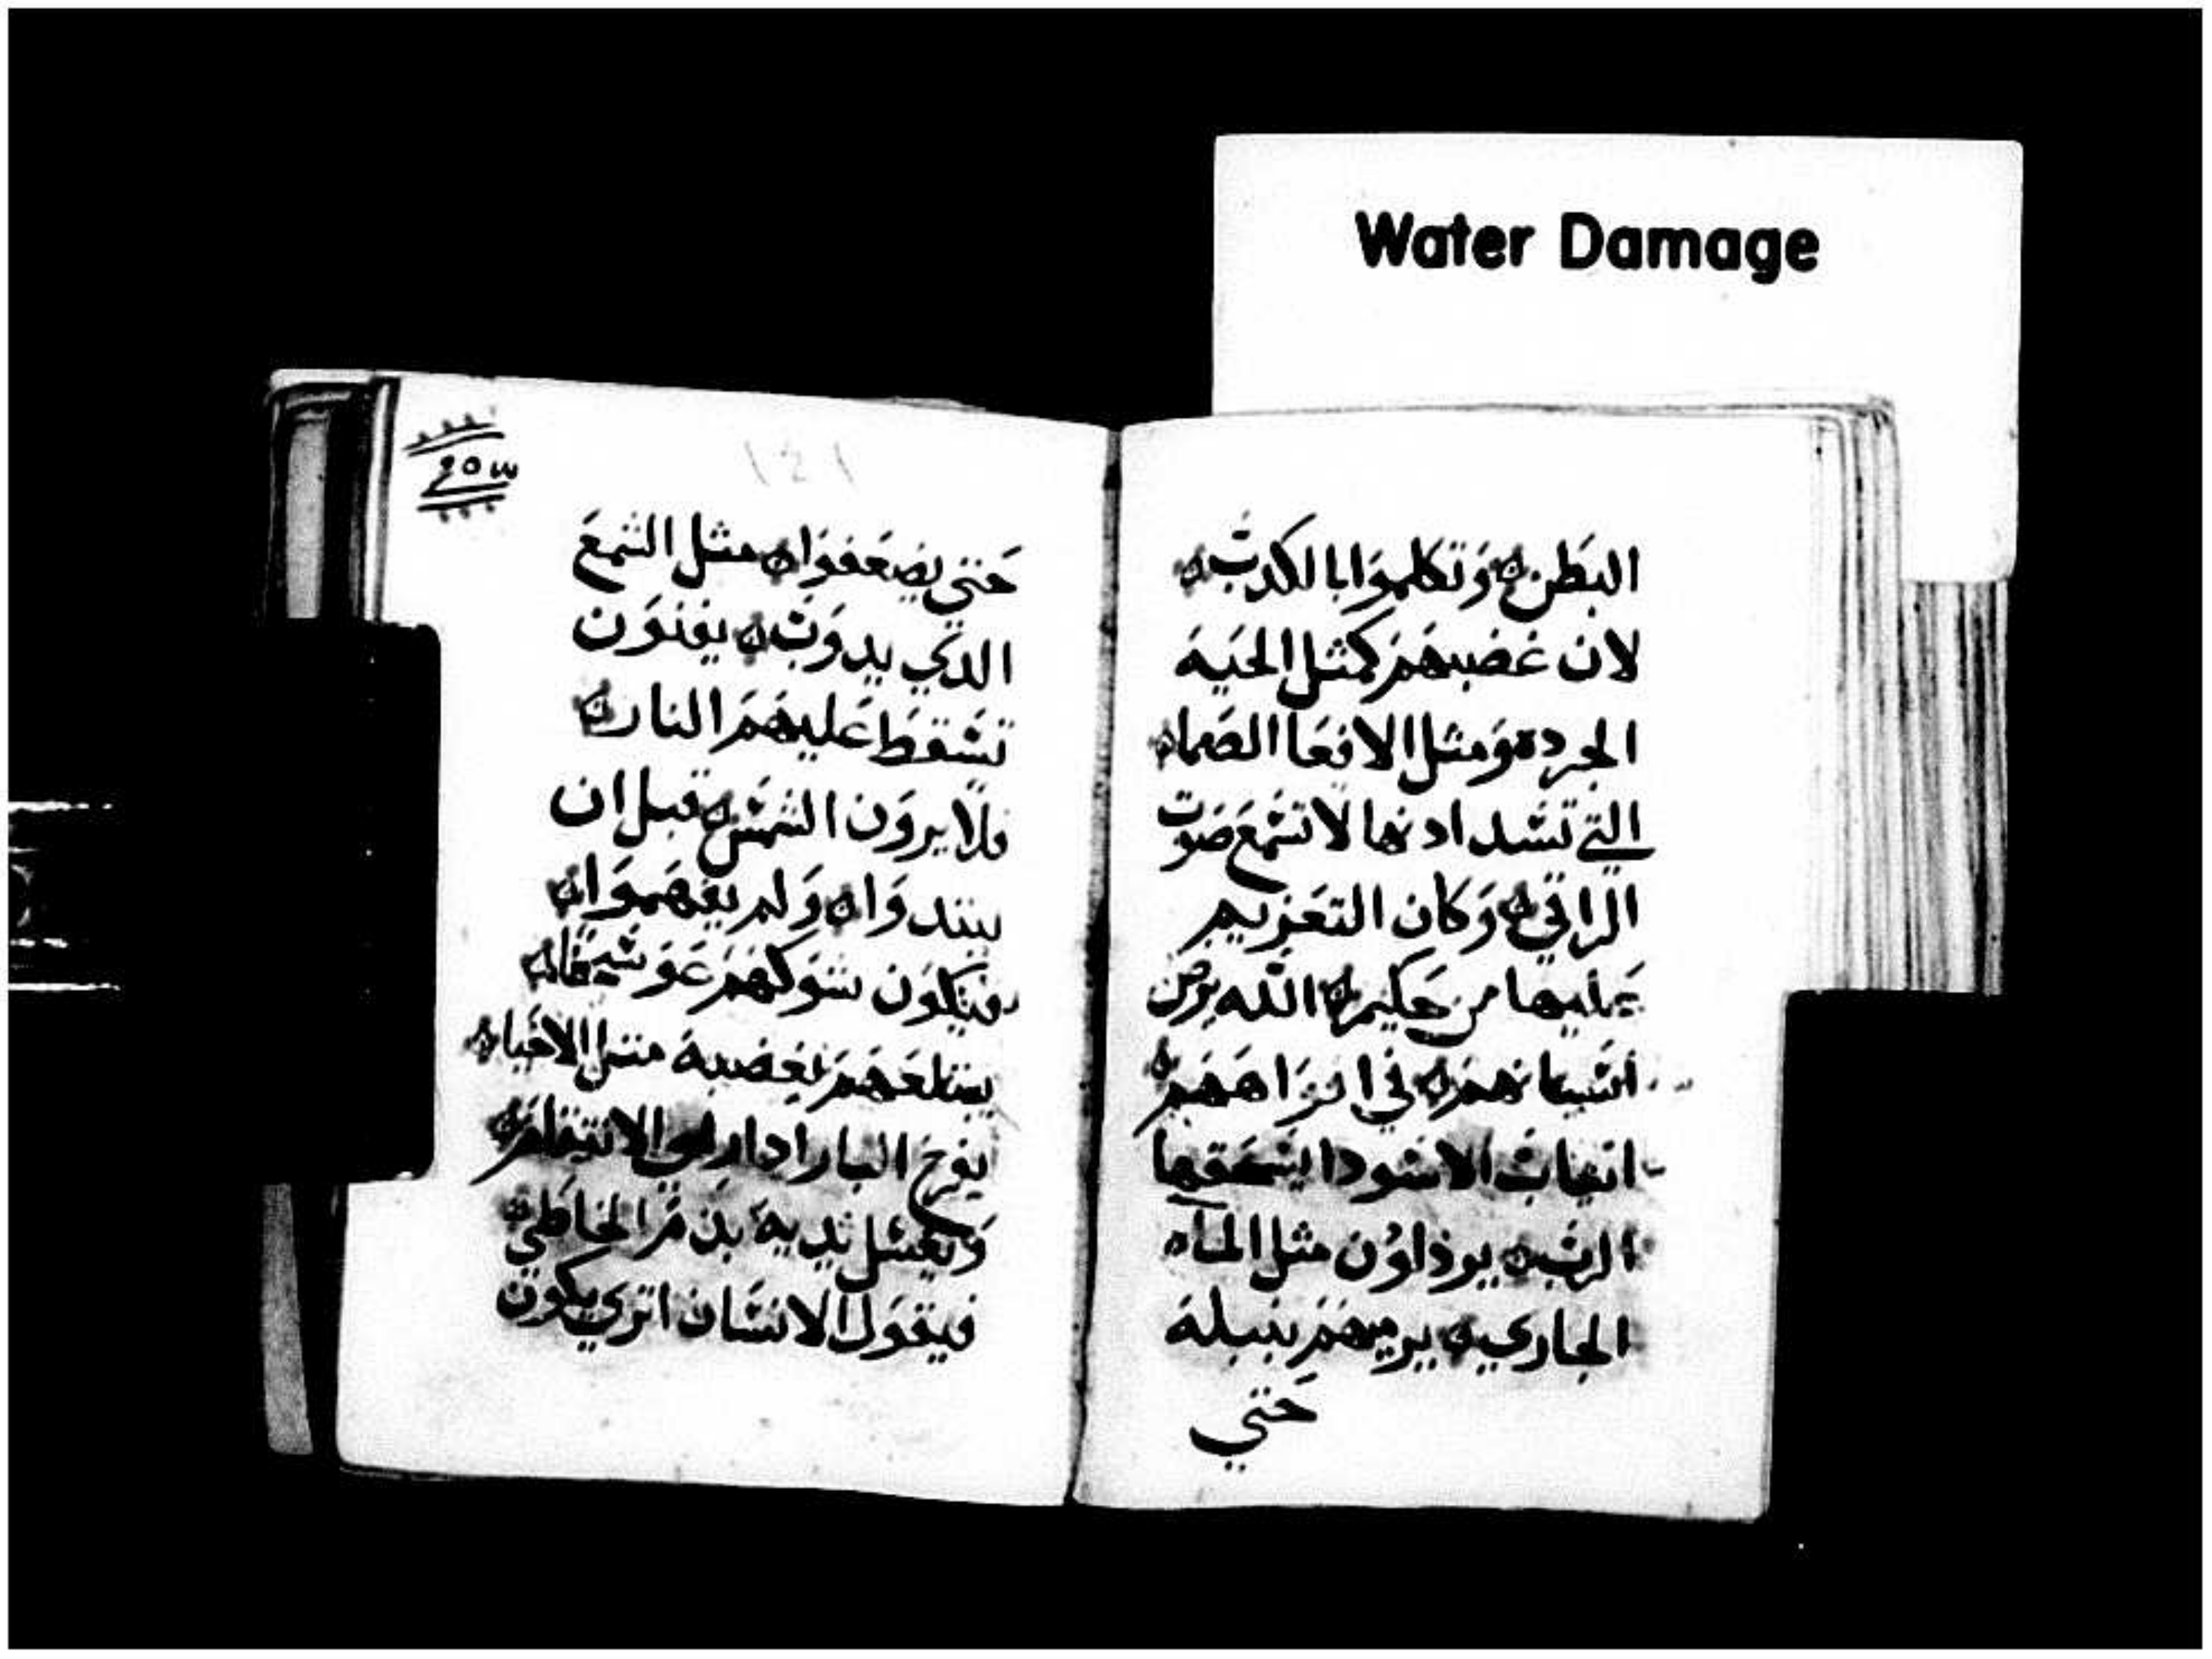 Water Damage
البطن ه وتكلموا بالكدب ه
لان غضبهم كمثل الحيه
الجرده ومثل الافعا الصماه
التي تشد ادنها لا تشمع صوت
الراقي ه وكان التعزيم
عليها من حكيم ه الله يرض
اشنانهم ه في افواههم ه
انياب الاشود يشحقها
الرب ه يرذلون مثل الماه
الجاري ه يرميهم بنبله
حتي
حتي يضعفوا ه مثل الشمع
الدي يدوب ه يفنون
تشقط عليهم النار ه
فلا يرون الشمش ه قبل ان
ينبدوا ه ولم يفهموا ه
فيكون شوكهم عوشيقا ه
يبتلعهم بغضبه مثل الاحيا ه
يفرح البار ادا راي الانتقام ه
ويغشل يديه بدم الخاطي ه
فيقول الانشان اتري يكون